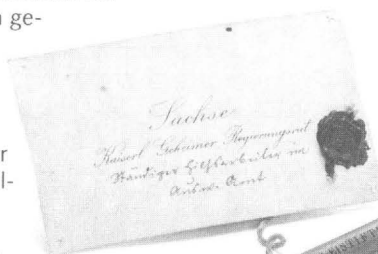 ge-
r
l-
Sachse
Kaiserl. Geheimer Regierungsrat
Ständiger Hilfsarbeiter im
Ausw. Amt